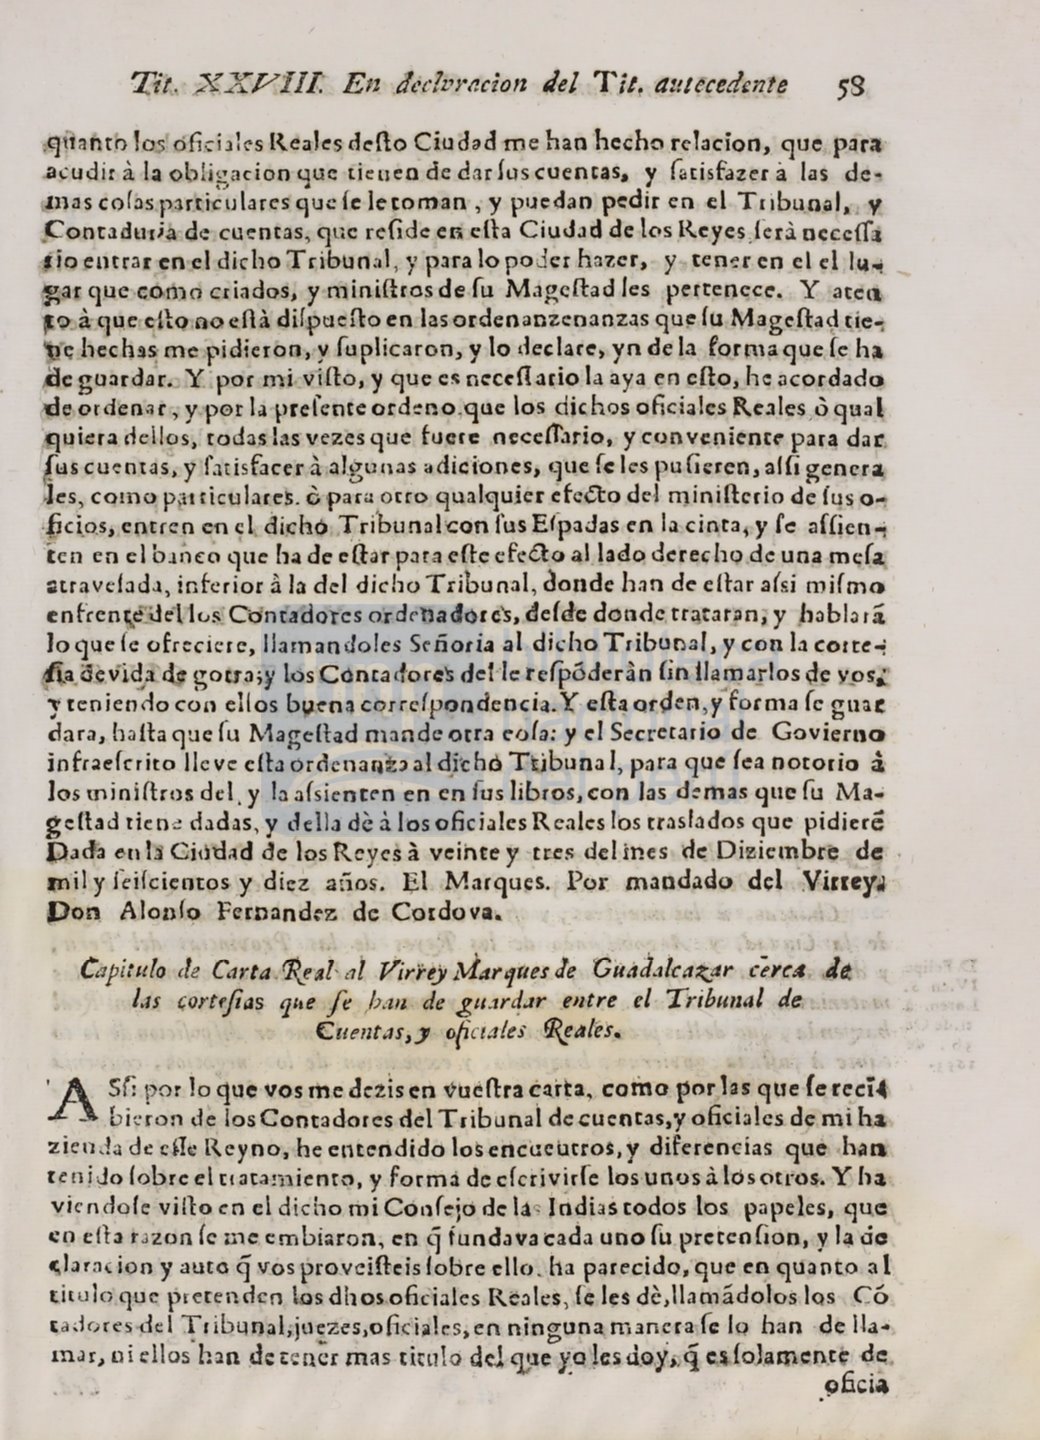 Tit. XXVIII. En declvracion del Tit. autecedente 58
quanto los oficiales Reales desto Ciudad me han hecho relacion, que para
acudir à la obligacion que tienen de dar sus cuentas, y satisfazer à las de-
mas cosas particulares que se le toman, y puedan pedir en el Tribunal, y
Contaduria de cuentas, que reside en esta Ciudad de los Reyes serà necessa
rio entrar en el dicho Tribunal, y para lo poder hazer, y tener en el el lu-
gar que como criados, y ministros de su Magestad les pertenece. Y aten
to à que esto no està dispuesto en las ordenanzenanzas que su Magestad tie-
ne hechas me pidieron, y suplicaron, y lo declare, yn de la forma que se ha
de guardar. Y por mi visto, y que es necessario la aya en esto, he acordado
de ordenar, y por la presente ordeno que los dichos oficiales Reales ò qual
quiera dellos, todas las vezes que fuere necessario, y conveniente para dar
sus cuentas, y satisfacer à algunas adiciones, que se les pusieren, assi genera
les, como particulares. ò para otro qualquier efecto del ministerio de sus o-
ficios, entren en el dicho Tribunal con sus Espadas en la cinta, y se assien-
ten en el banco que ha de estar para este efecto al lado derecho de una mesa
atravesada, inferior à la del dicho Tribunal, donde han de estar assi mismo
enfrente dellos Contadores ordenadores, desde donde trataran, y hablarã
lo que se ofreciere, llamandoles Señoria al dicho Tribunal, y con la corte-
sia devida de gorra; y los Contadores del le respõderàn sin llamarlos de vos,
y teniendo con ellos buena correspondencia. Y esta orden, y forma se guar
dara, hasta que su Magestad mande otra cosa: y el Secretario de Govierno
infraescrito lleve esta ordenanza al dicho Tribunal, para que sea notorio à
los ministros del, y la assienten en en sus libros, con las demas que su Ma-
gestad tiene dadas, y della dè à los oficiales Reales los traslados que pidierē
Dada en la Ciudad de los Reyes à veinte y tres del mes de Diziembre de
mil y seiscientos y diez años. El Marques. Por mandado del Virrey.
Don Alonso Fernandez de Cordova.
Capitulo de Carta Real al Virrey Marques de Guadalcazar cerca de
las cortesias que se han de guardar entre el Tribunal de
Cuentas, y oficiales Reales.
ASsi por lo que vos me dezis en vuestra carta, como por las que se reci
bieron de los Contadores del Tribunal de cuentas, y oficiales de mi ha
zienda de esse Reyno, he entendido los encueutros, y diferencias que han
tenido sobre el tratamiento, y forma de escrivirse los unos à los otros. Y ha
viendose visto en el dicho mi Consejo de las Indias todos los papeles, que
en esta razon se me embiaron, en q̃ fundava cada uno su pretension, y la de
claracion y auto q̃ vos proveisteis sobre ello. ha parecido, que en quanto al
titulo que pretenden los dhos oficiales Reales, se les dè, llamãdolos los Cõ
tadores del Tribunal, juezes, oficiales, en ninguna manera se lo han de lla-
mar, ni ellos han de tener mas titulo del que yo les doy, q̃ es solamente de
oficia